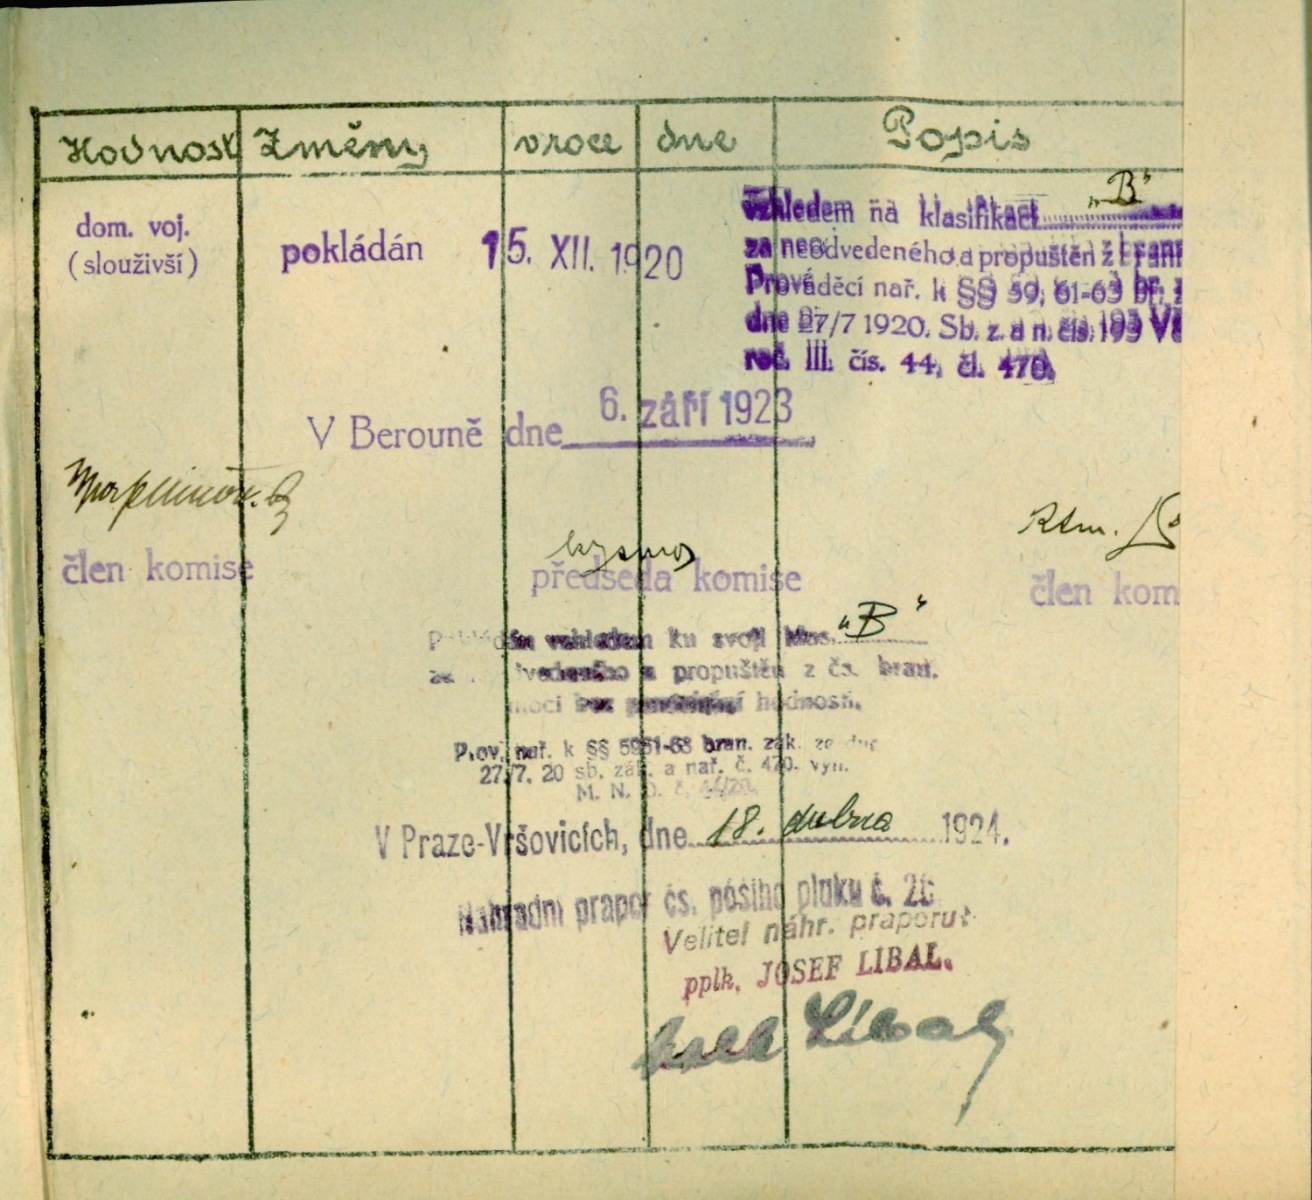 Hodnosť Změny v roce dne Popis
dom. voj.
(slouživší)
pokládán 15. XII. 1920
vzhledem na klasifikaci „B“
za neodvedeného a propuštěn z brann
Prováděcí nař. k §§ 59, 61-63 br. z
dne 27/7 1920. Sb. z. a n. čís. 193 Vě
roč. III. čís. 44, čl. 470.
V Berouně dne 6. září 1923
člen komise
předseda komise
Rtm.
člen kom
vzhledem ku svojí klas. „B“
a propuštěn z čs. bran.
moci bez hodnosti.
Prov. nař. k §§ 5961-63 bran. zák. ze dne
27/7. 20 sb. zák. a nař. č. 470. vyn.
M. N. O. č. 44/20.
V Praze-Vršovicích, dne 18. dubna 1924.
Náhradní prapor čs. pěšího pluku č. 28
Velitel náhr. praporu:
pplk. JOSEF LIBAL.
Libal